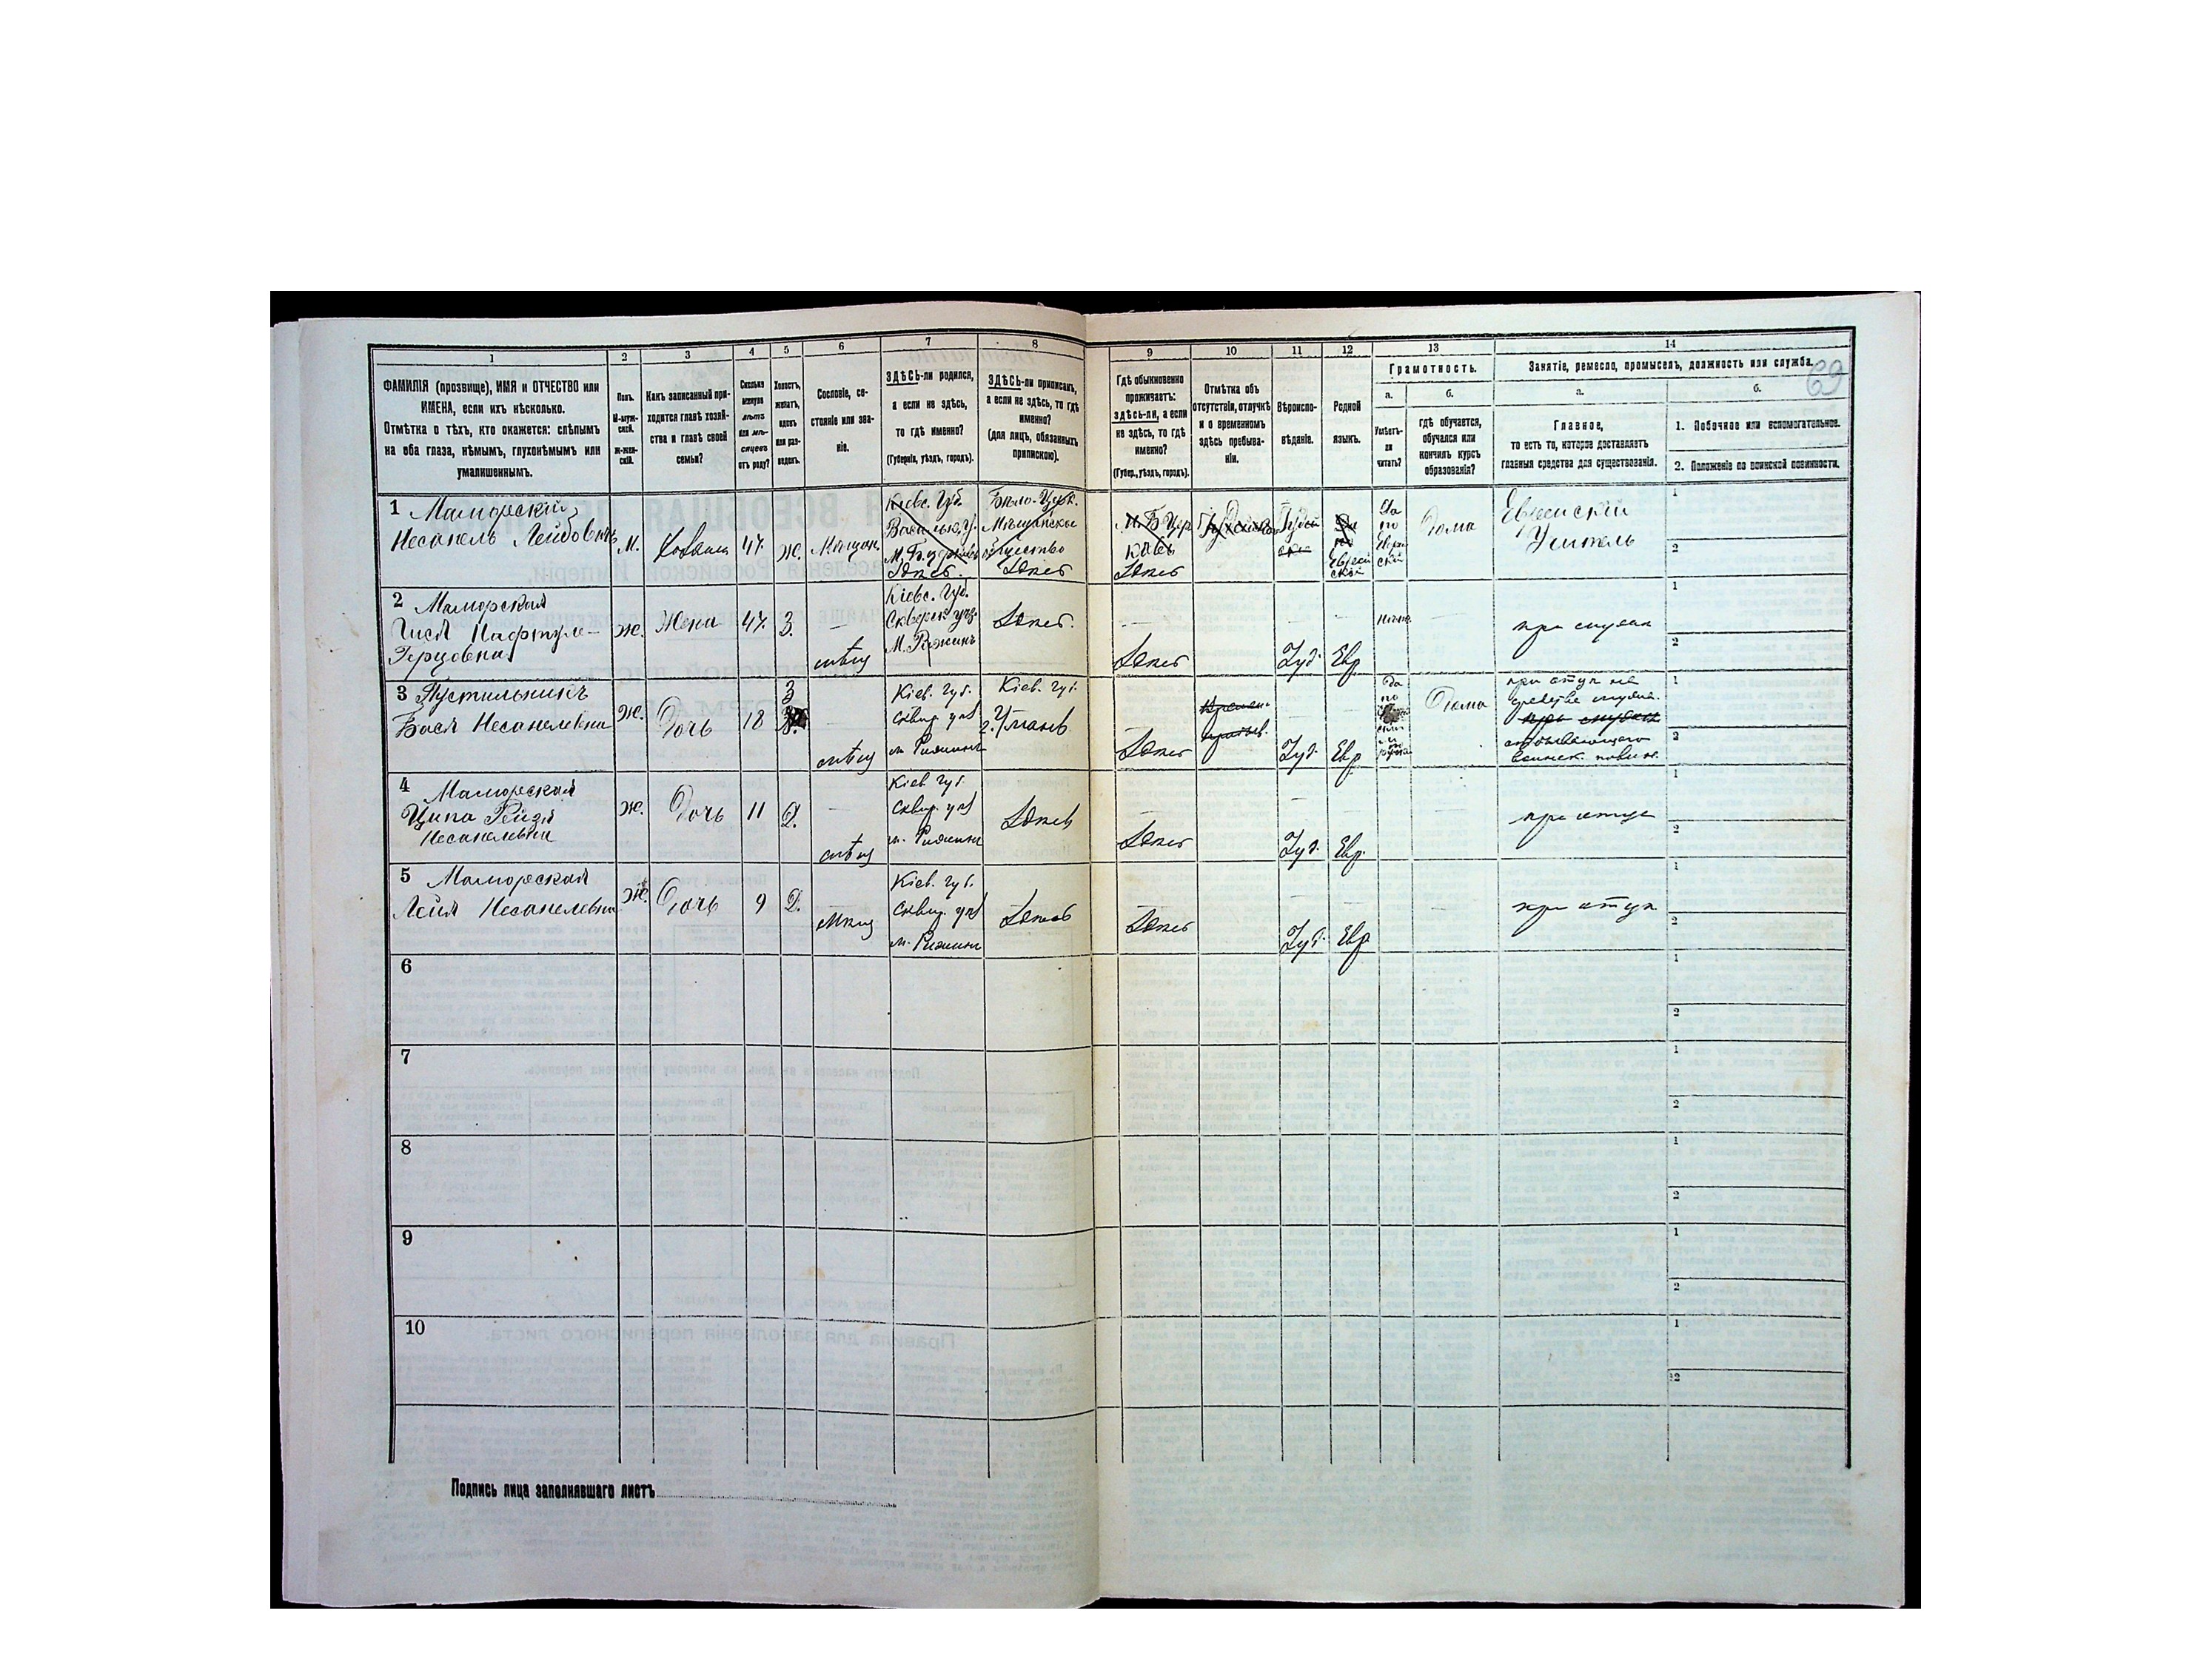 1 2 3 4 5 6 7 8 9 10 11 12 13 14
69
ФАМИЛІЯ (прозвище), ИМЯ и ОТЧЕСТВО или
ИМЕНА, если ихъ нѣсколько.
Отмѣтка о тѣхъ, кто окажется: слѣпымъ
на оба глаза, нѣмымъ, глухонѣмымъ или
умалишеннымъ.
Полъ.
М-муж-
ской.
ж-жен-
скій.
Какъ записанный при-
ходится главѣ хозяй-
ства и главѣ своей
семьи?
Сколько
минуло
лѣтъ
или мѣ-
сяцевъ
отъ роду?
Холостъ,
женатъ,
вдовъ
или раз-
веденъ.
Сословіе, со-
стояніе или зва-
ніе.
ЗДѢСЬ-ли родился,
а если не здѣсь,
то гдѣ именно?
(Губернія, уѣздъ, городъ).
ЗДѢСЬ-ли приписанъ,
а если не здѣсь, то гдѣ
именно?
(для лицъ, обязанныхъ
припискою).
Гдѣ обыкновенно
проживаетъ:
здѣсь-ли, а если
не здѣсь, то гдѣ
именно?
(Губер., уѣздъ, городъ).
Отмѣтка объ
отсутствіи, отлучкѣ
и о временномъ
здѣсь пребыва-
ніи.
Вѣроиспо-
вѣданіе.
Родной
языкъ.
Грамотность.
а.
Умѣетъ-
ли
читать?
б.
гдѣ обучается,
обучался или
кончилъ курсъ
образованія?
Занятіе, ремесло, промыселъ, должность или служба.
а.
Главное,
то есть то, которое доставляетъ
главныя средства для существованія.
б.
1. Побочное или вспомогательное.
2. Положеніе по воинской повинности.
1 Маморскій
Несанель Лейбовичъ
М. 47 ж. Мѣщан.
Кіевс. Губ.
Бѣло-Церк.
Мѣщанское
общество
Здѣсь
Здѣсь
Здѣсь
Еврей
скій
Да
по
Еврей
скій
Дома
Еврейскій
Учитель
2 Маморская
Гися Нафтуле-
Герцовна
Ж. Жена 47. З. —
Кіевс. Губ.
Сквирск уѣз.
М. Ружинъ
Здѣсь.
Здѣсь
Іуд. Евр
при мужѣ
3 Пустильникъ
Бася Несанелевна
Ж. Дочь 18 З —
Кіев. губ.
Сквир. уѣз
м. Ружинъ
Кіев. губ.
г. Умань
Здѣсь
Іуд. Евр
Да
по
Дома
4 Маморская
Ципа Рейзя
Несанелевна
Ж. Дочь 11 Д. —
Кіев губ.
Сквир. уѣз
м. Ружинъ
Здѣсь
Здѣсь
Іуд. Евр.
при отцѣ
5 Маморская
Лейя Несанелевна
Ж. Дочь 9 Д.
Кіев. губ.
Сквир. уѣз
м. Ружинъ
Здѣсь
Здѣсь
Іуд. Евр
при отцѣ
6
7
8
9
10
Подпись лица заполнявшаго листъ